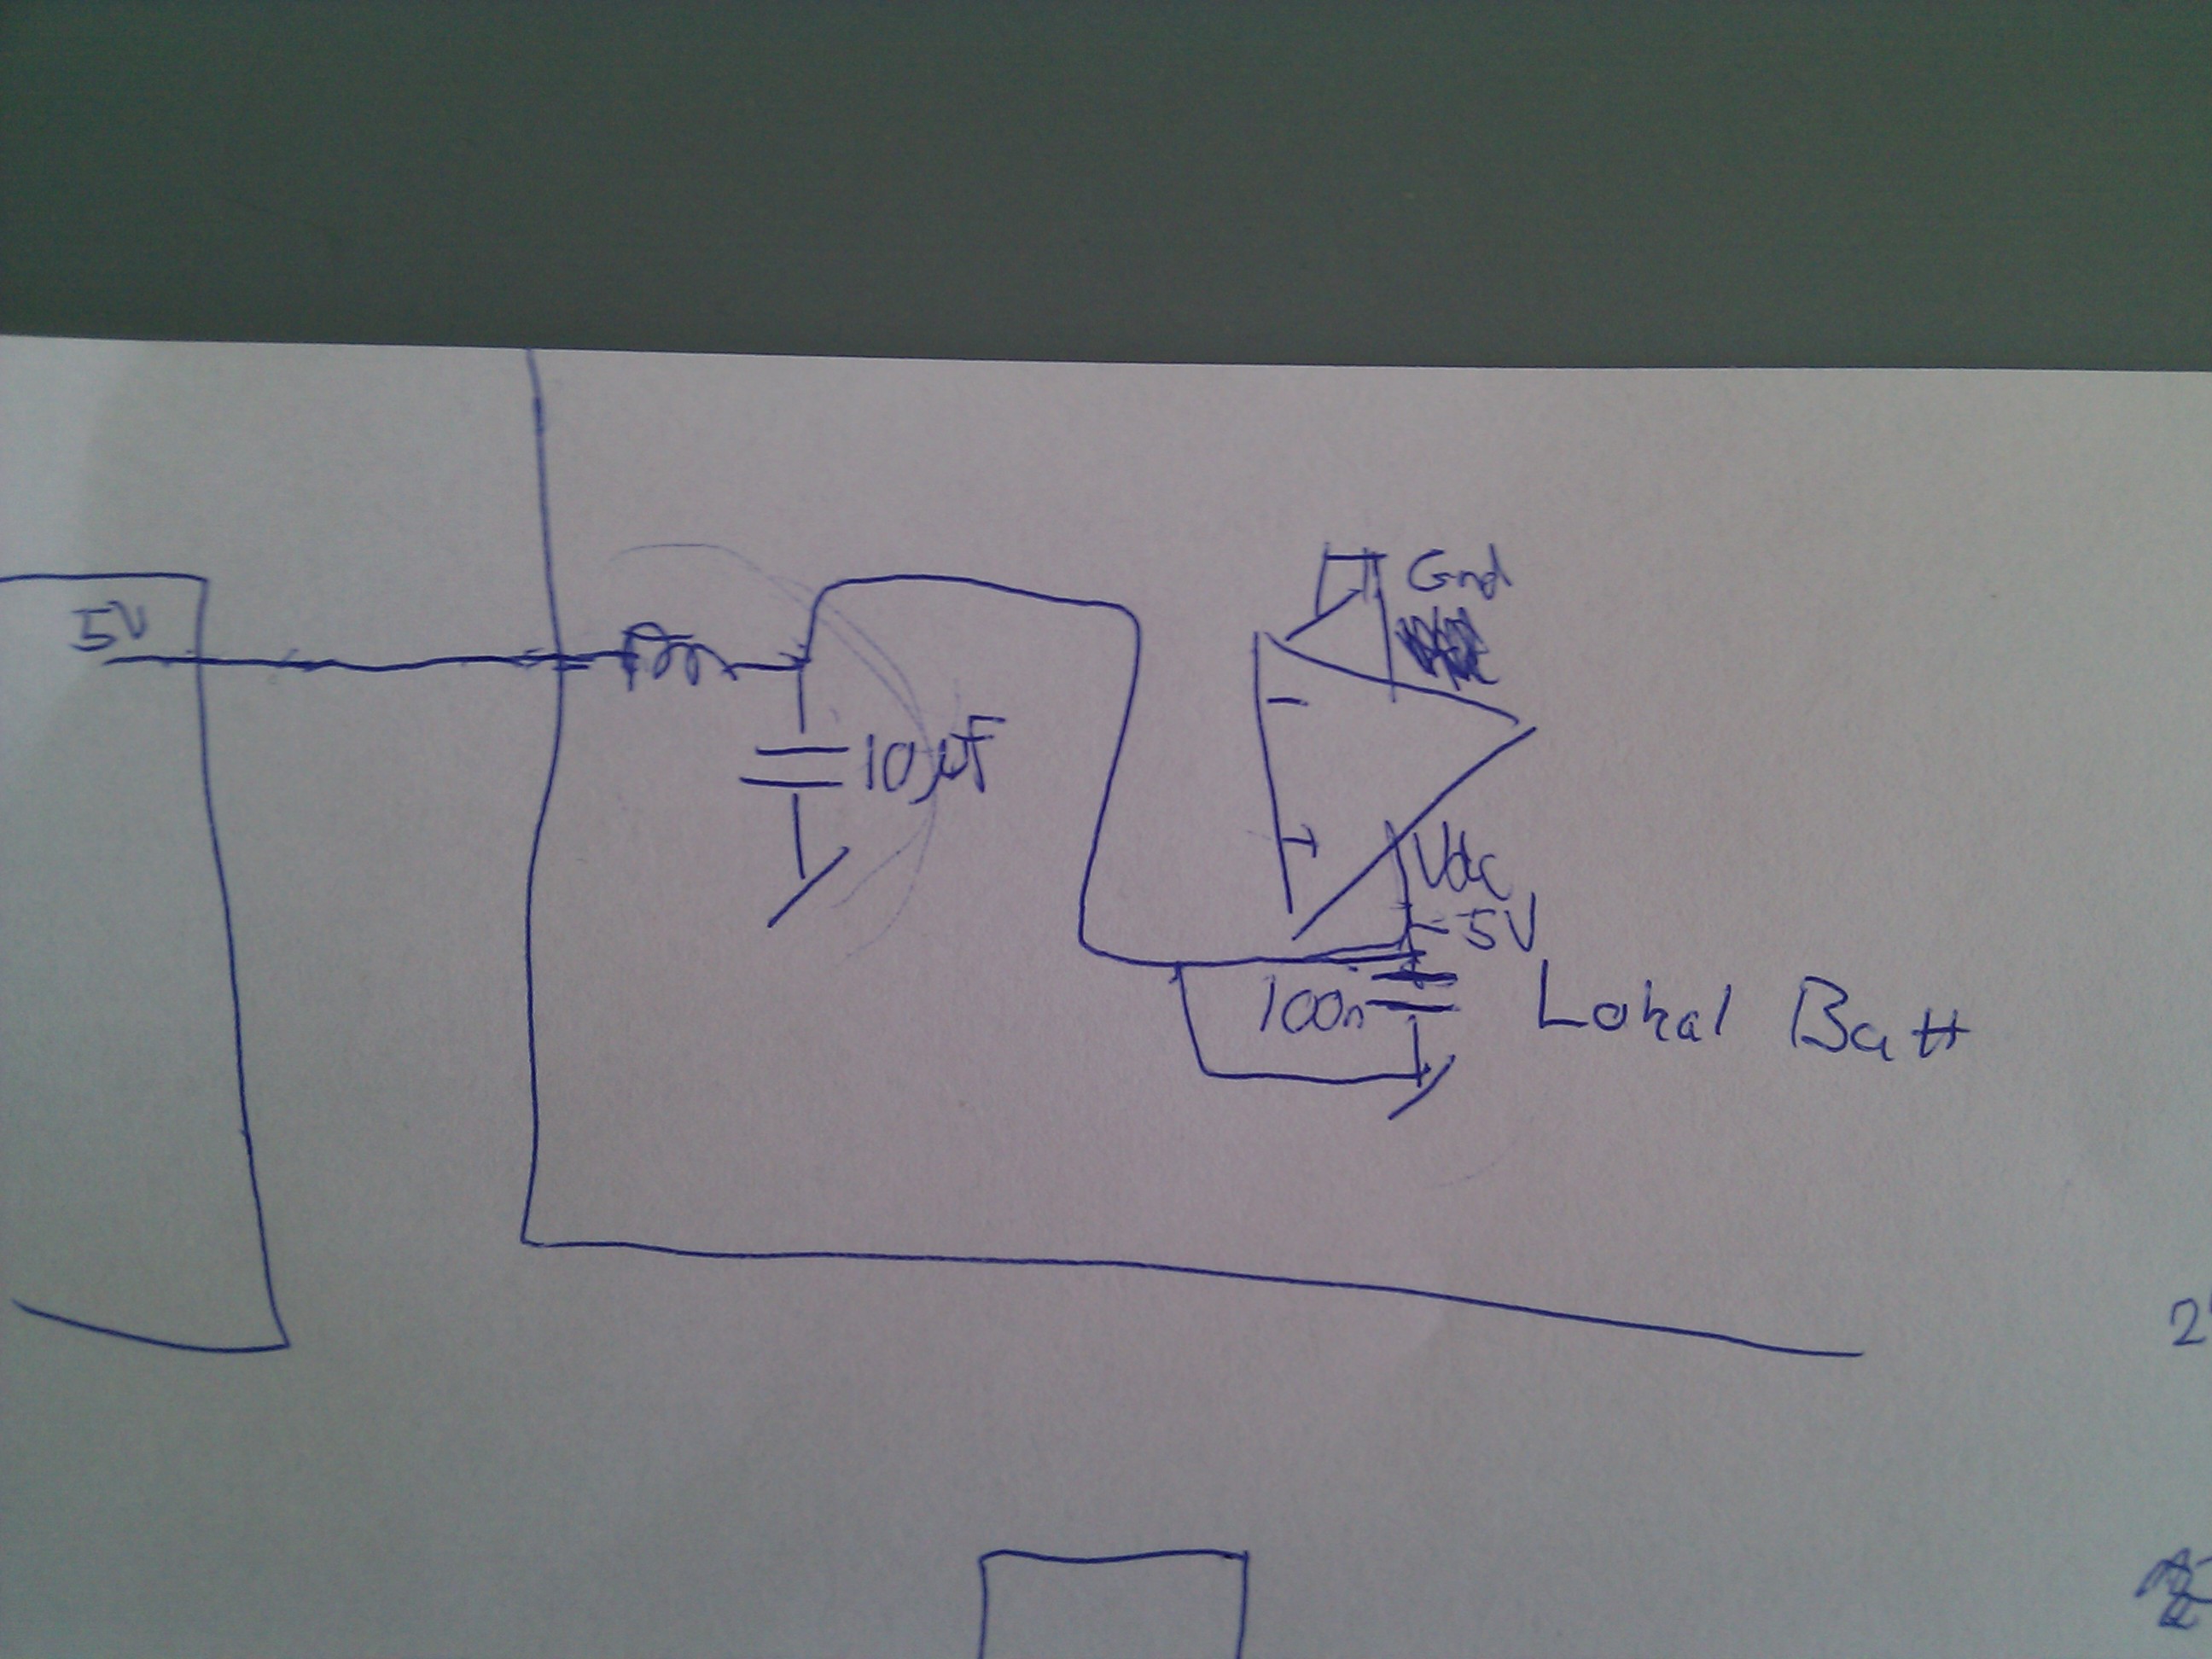 5V
10µF
Gnd
-
+
Vdc
-5V
100n
Lokal Batt
2